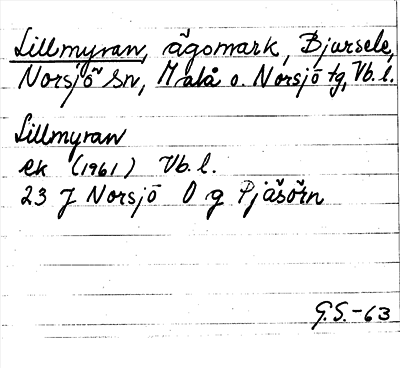 Lillmyran, ägomark, Bjursele,
Norsjö sn, Malå o. Norsjö tg, Vb. l.
Lillmyran
ek (1961) Vb. l.
23 J Norsjö O g Pjäsörn
G.S.-63